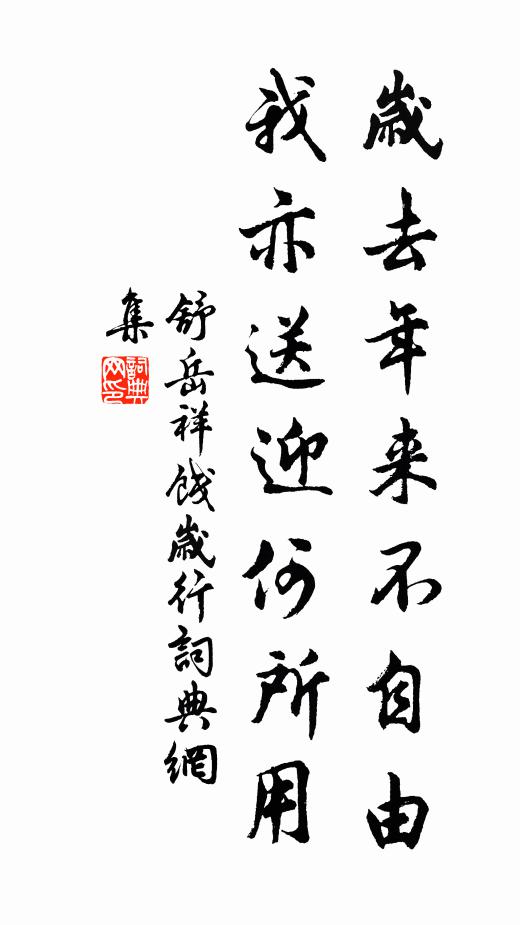 歲去年来不自由
我亦送迎何所用
舒岳祥餞歲行詞典網
集
詞典网印